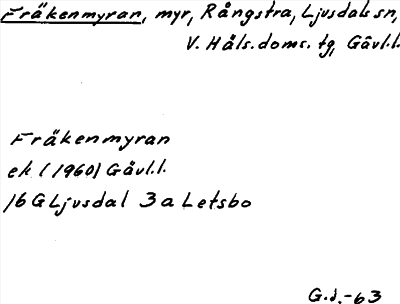 Fräkenmyran, myr, Rångstra, Ljusdals sn,
V. Häls. doms. tg, Gävl.l.
Fräkenmyran
ek (1960) Gävl.l.
16 G Ljusdal 3 a Letsbo
G.J.-63